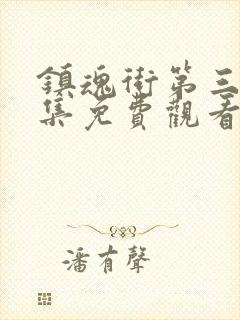 鎮魂街第三
集免費觀看
潘有聲